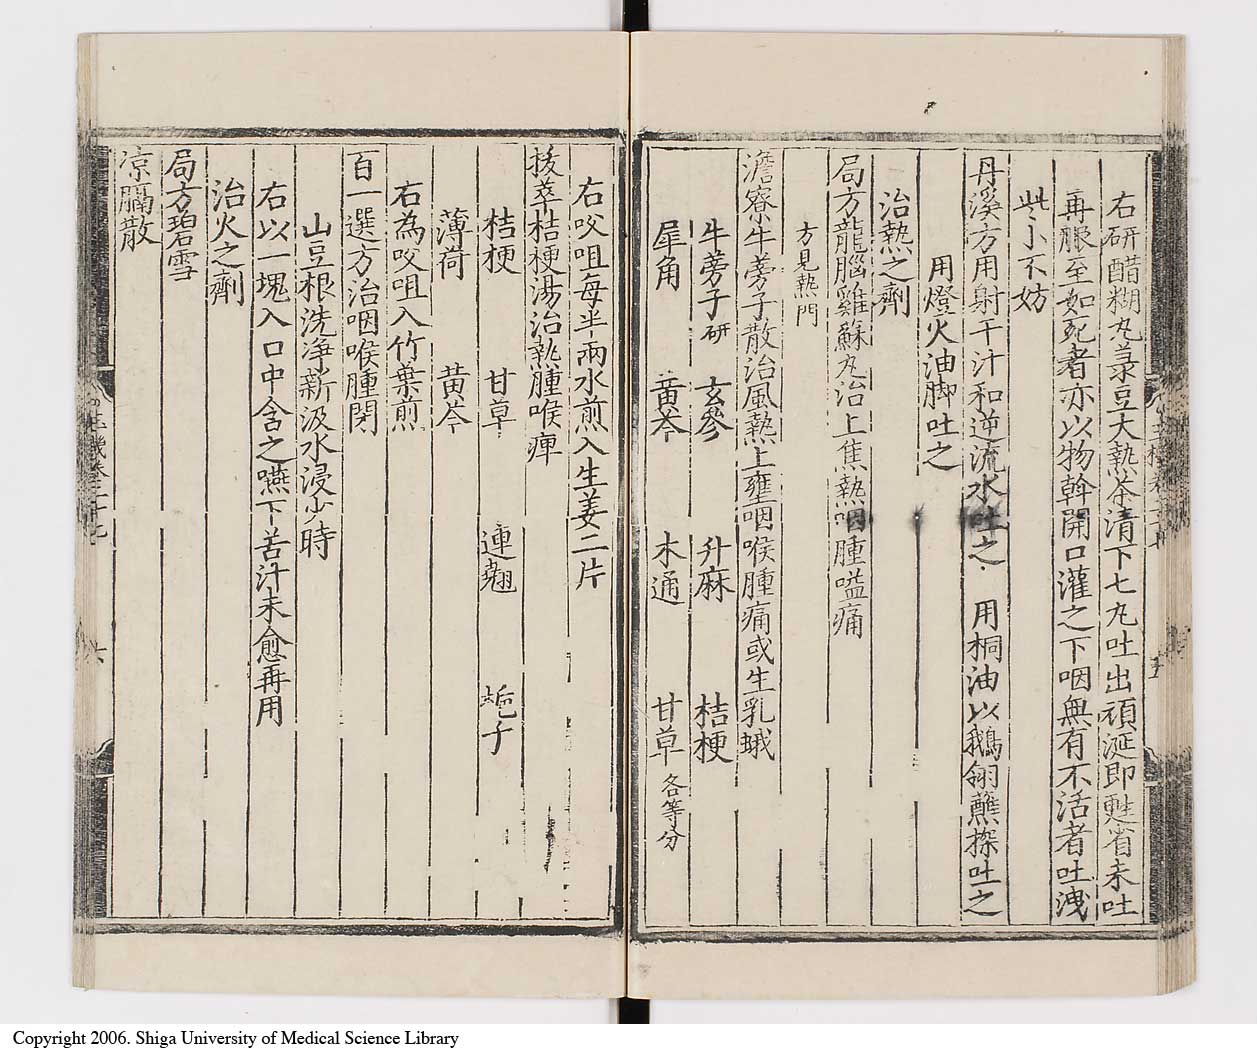 右研醋糊丸菉豆大熱茶清下七丸吐出頑涎即甦省未吐
再服至如死者亦以物斡開口灌之下咽無有不活者吐洩
些小不妨
用燈火油脚吐之
丹溪方用射干汁和逆流水吐之 用桐油以鵝翎蘸探吐之
治熱之劑
局方龍腦雞蘇丸治上焦熱咽腫嗌痛
方見熱門
澹寮牛蒡子散治風熱上壅咽喉腫痛或生乳蛾
牛蒡子研 玄參 升麻 桔梗
犀角 黃芩 木通 甘草各等分
右㕮咀每半兩水煎入生姜二片
拔萃桔梗湯治熱腫喉痺
桔梗 甘草 連翹 梔子
薄荷 黃芩
右為㕮咀入竹葉煎
百一選方治咽喉腫閉
山豆根洗淨新汲水浸少時
右以一塊入口中含之嚥下苦汁未愈再用
治火之劑
局方碧雪
凉膈散
六
Copyright 2006. Shiga University of Medical Science Library